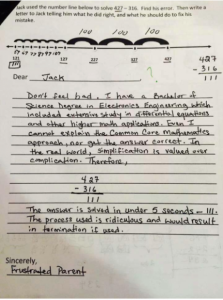 Jack used the number line below to solve 427 – 316. Find his error. Then write a
letter to Jack telling him what he did right, and what he should do to fix his
mistake.
100 100 100
127 227 327 427
427
- 316
111
Dear Jack
Don't feel bad. I have a Bachelor of
Science Degree in Electronics Engineering which
included extensive study in differential equations
and other higher math applications. Even I
cannot explain the Common Core mathematics
approach, nor get the answer correct. In
the real world, simplification is valued over
complication. Therefore,
427
- 316
111
The answer is solved in under 5 seconds – 111.
The process used is ridiculous and would result
in termination if used.
Sincerely,
Frustrated Parent